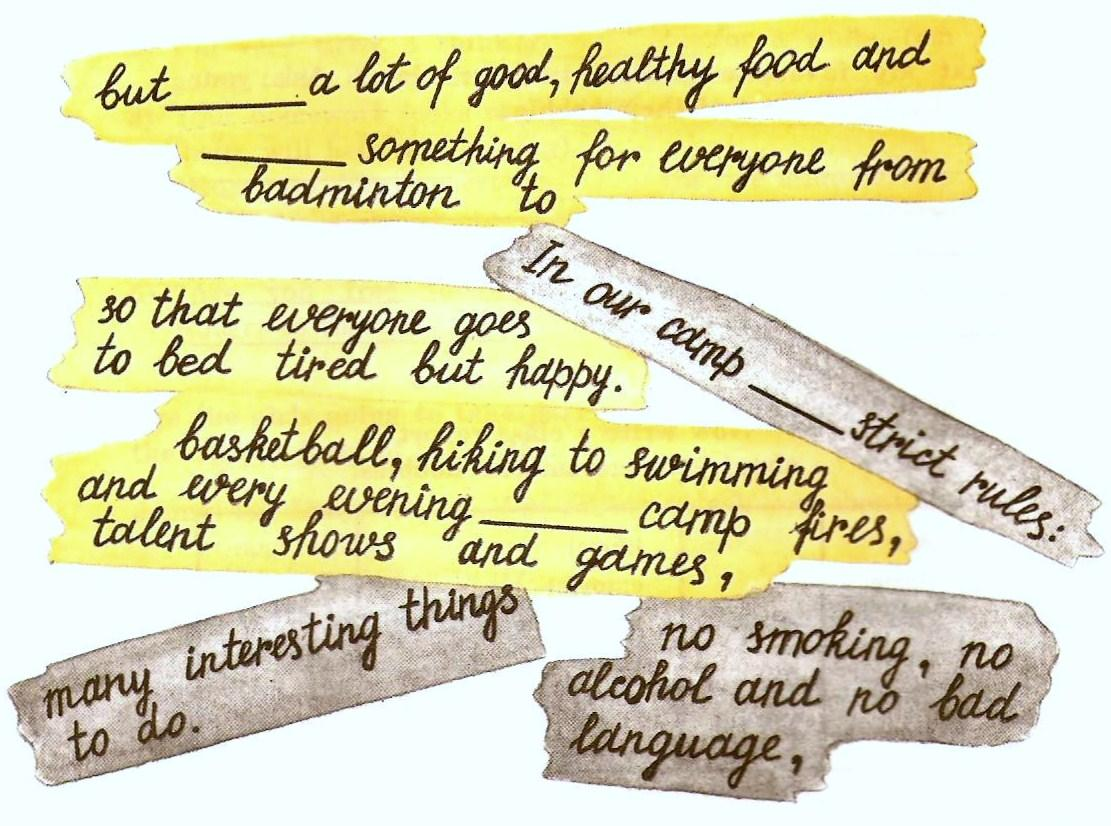 but_____a lot of good, healthy food and
_____ something for everyone from
badminton to
In our camp ____ strict rules:
so that everyone goes
to bed tired but happy.
basketball, hiking to swimming
and every evening _____ camp fires,
talent shows and games,
many interesting things
to do.
no smoking, no
alcohol and no bad
language,